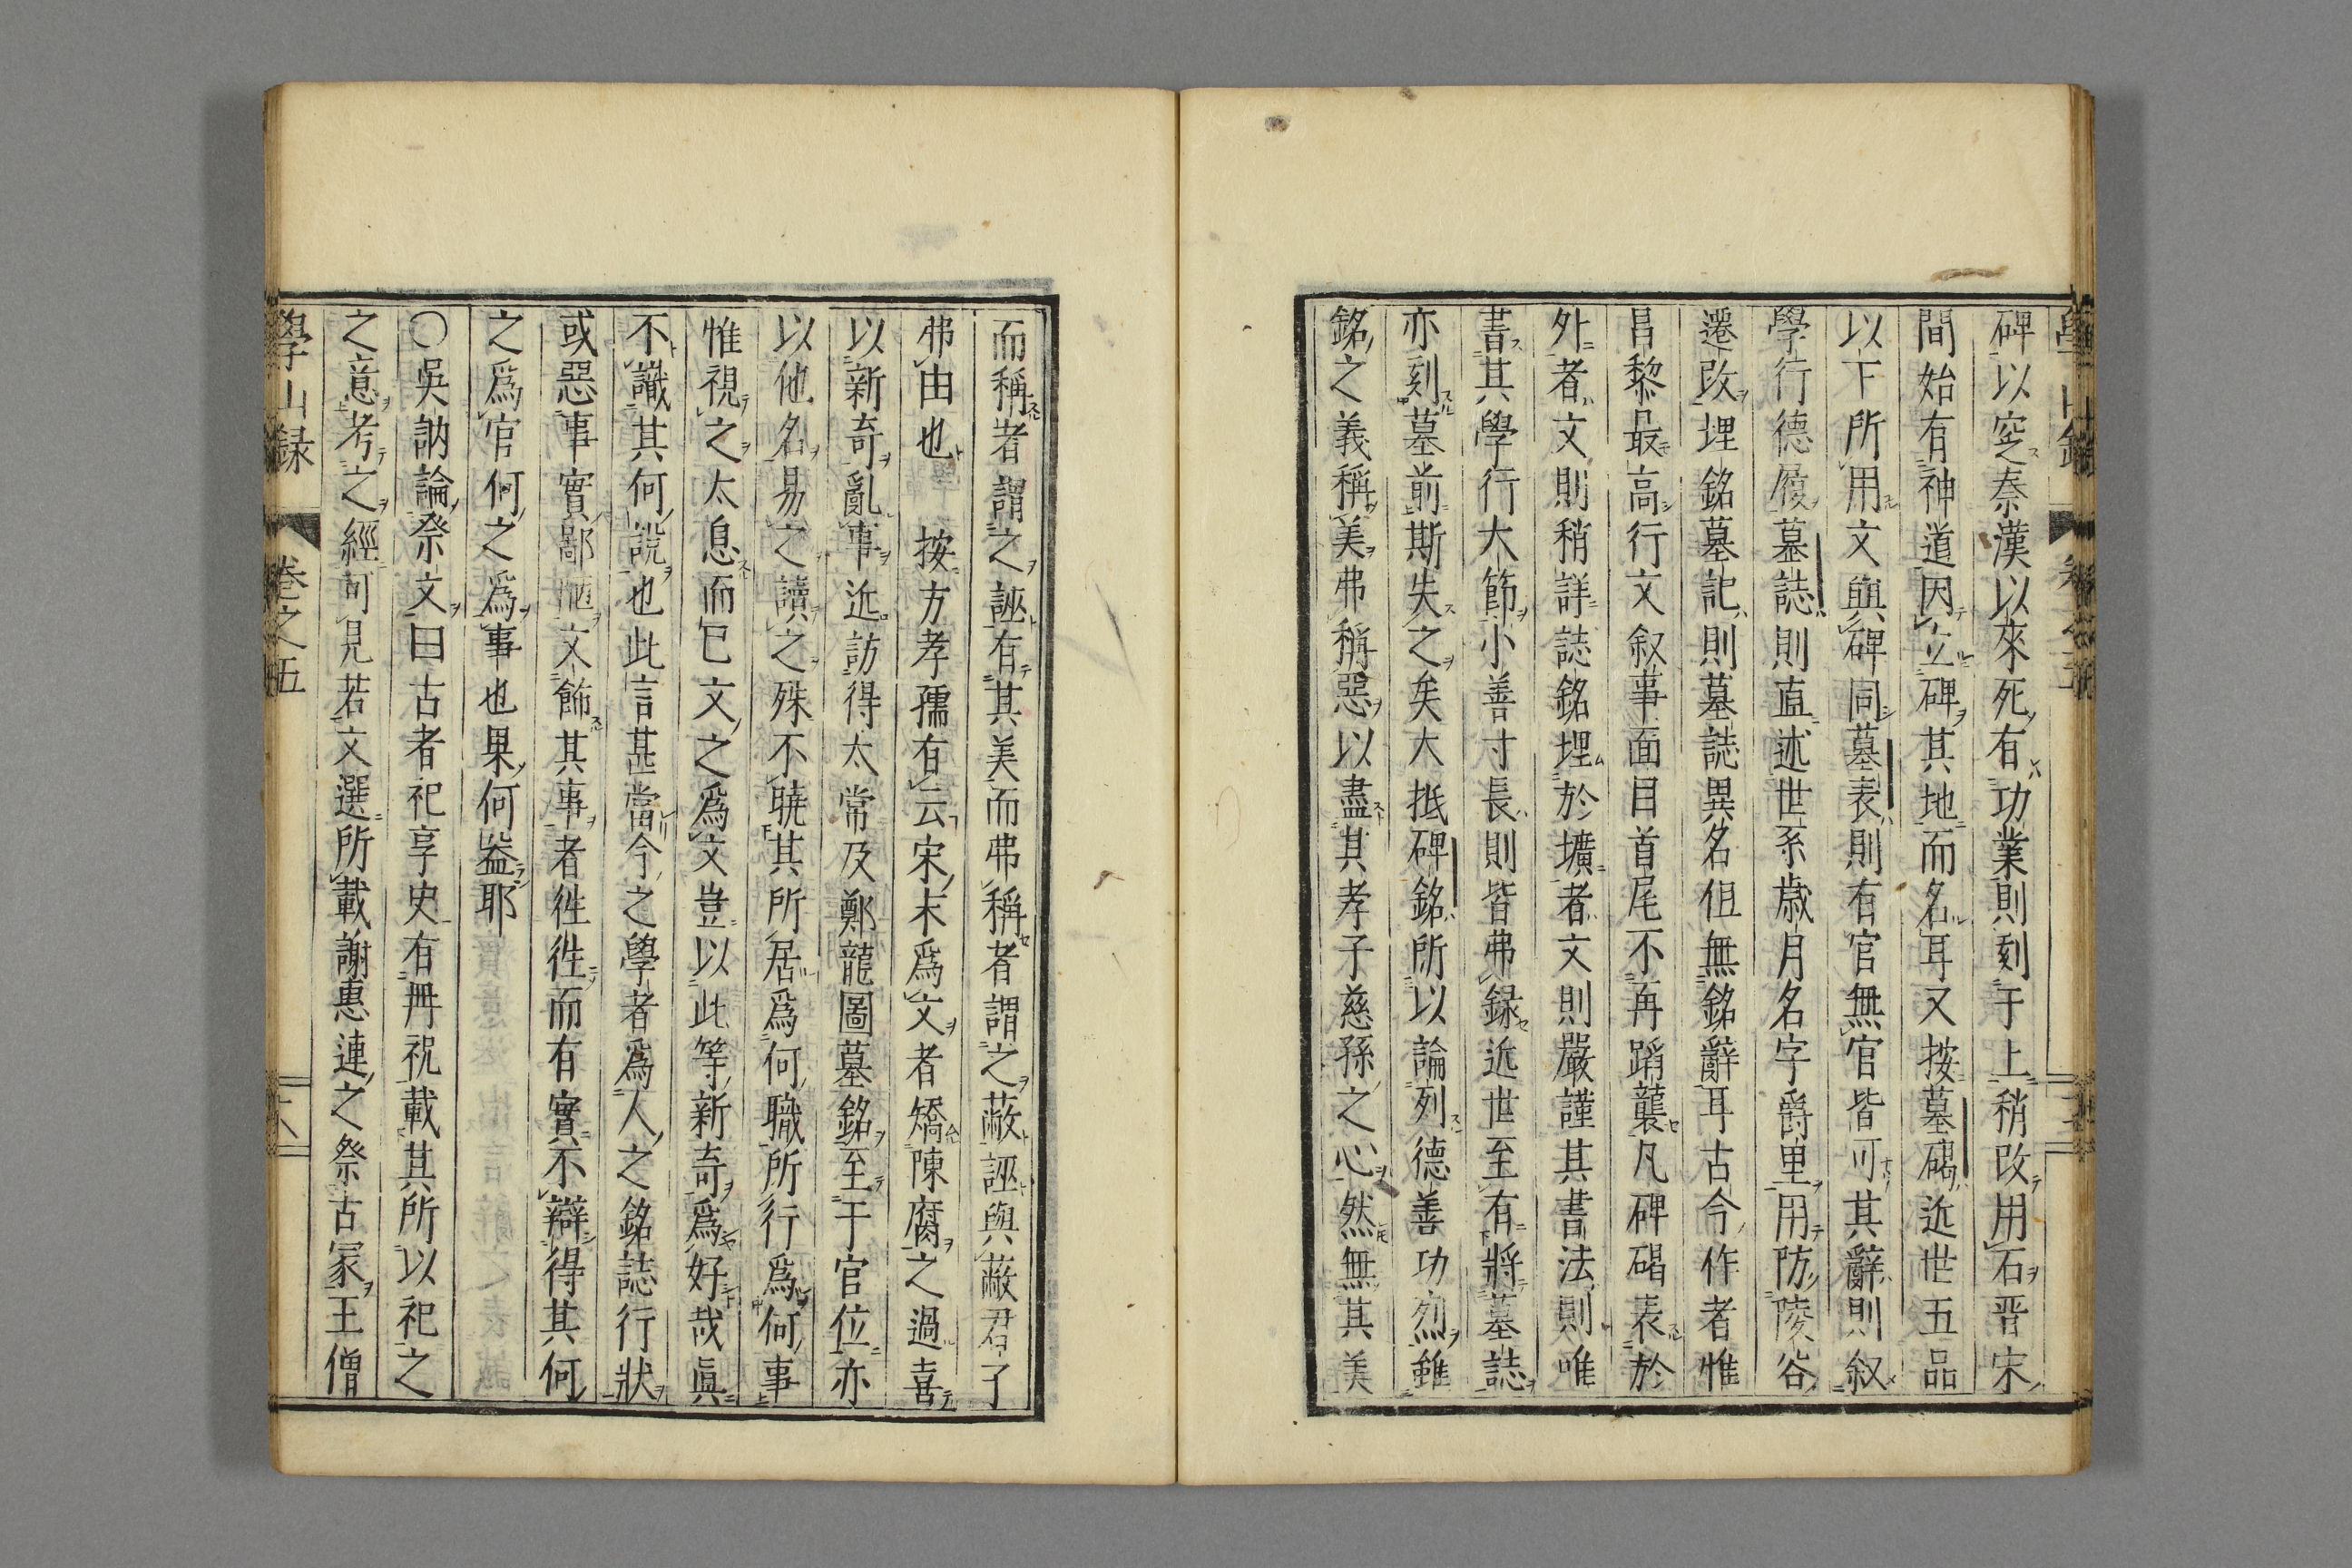 碑以窆秦漢以來死有功業則刻于上稍改用石晋宋
間始有神道因立碑其地而名耳又按墓碣近世五品
以下所用文與碑同墓表則有官無官皆可其辭則叙
學行德履墓誌則直述世系歳月名字爵里用防陵谷
遷改埋銘墓記則墓誌異名但無銘辭耳古今作者惟
昌黎最高行文叙事面目首尾不再蹈襲凡碑碣表於
外者文則稍詳誌銘埋於壙者文則嚴謹其書法則唯
書其學行大節小善寸長則皆弗録近世至有將墓誌
亦刻墓前斯失之矣大抵碑銘所以論列德善功烈雖
銘之義稱美弗稱惡以盡其孝子慈孫之心然無其美
而稱者謂之誣有其美而弗稱者謂之蔽誣與蔽君子
弗由也 按方孝孺有云宋末爲文者矯陳腐之過喜
以新奇亂事近訪得太常及鄭龍圖墓銘至于官位亦
以他名易之讀之殊不曉其所居爲何職所行爲何事
惟視之太息而已文之爲文豈以此等新奇爲好哉眞
不識其何説也此言甚當今之學者爲人之銘誌行狀
或惡事實鄙陋文飾其事者徃徃而有實不辯得其何
之爲官何之爲事也果何益耶
〇吳訥論祭文曰古者祀享史有冊祝載其所以祀之
之意考之經可見若文選所載謝惠連之祭古冢王僧
學山録 卷之五